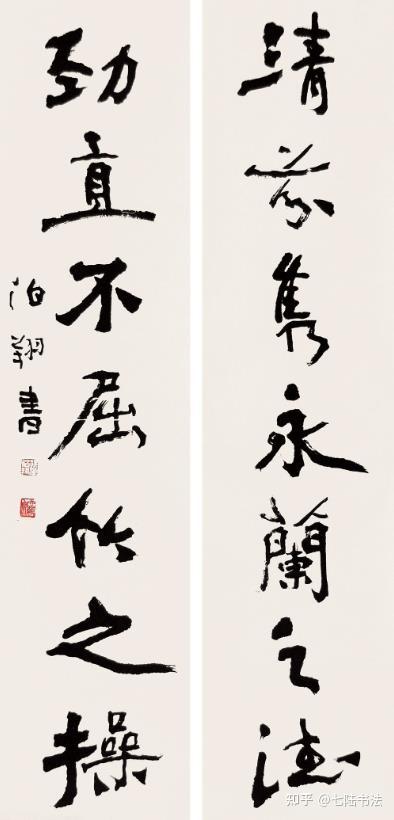 清芬隽永蘭之德
劲直不屈竹之操
伯翔書
知乎 @七陆书法